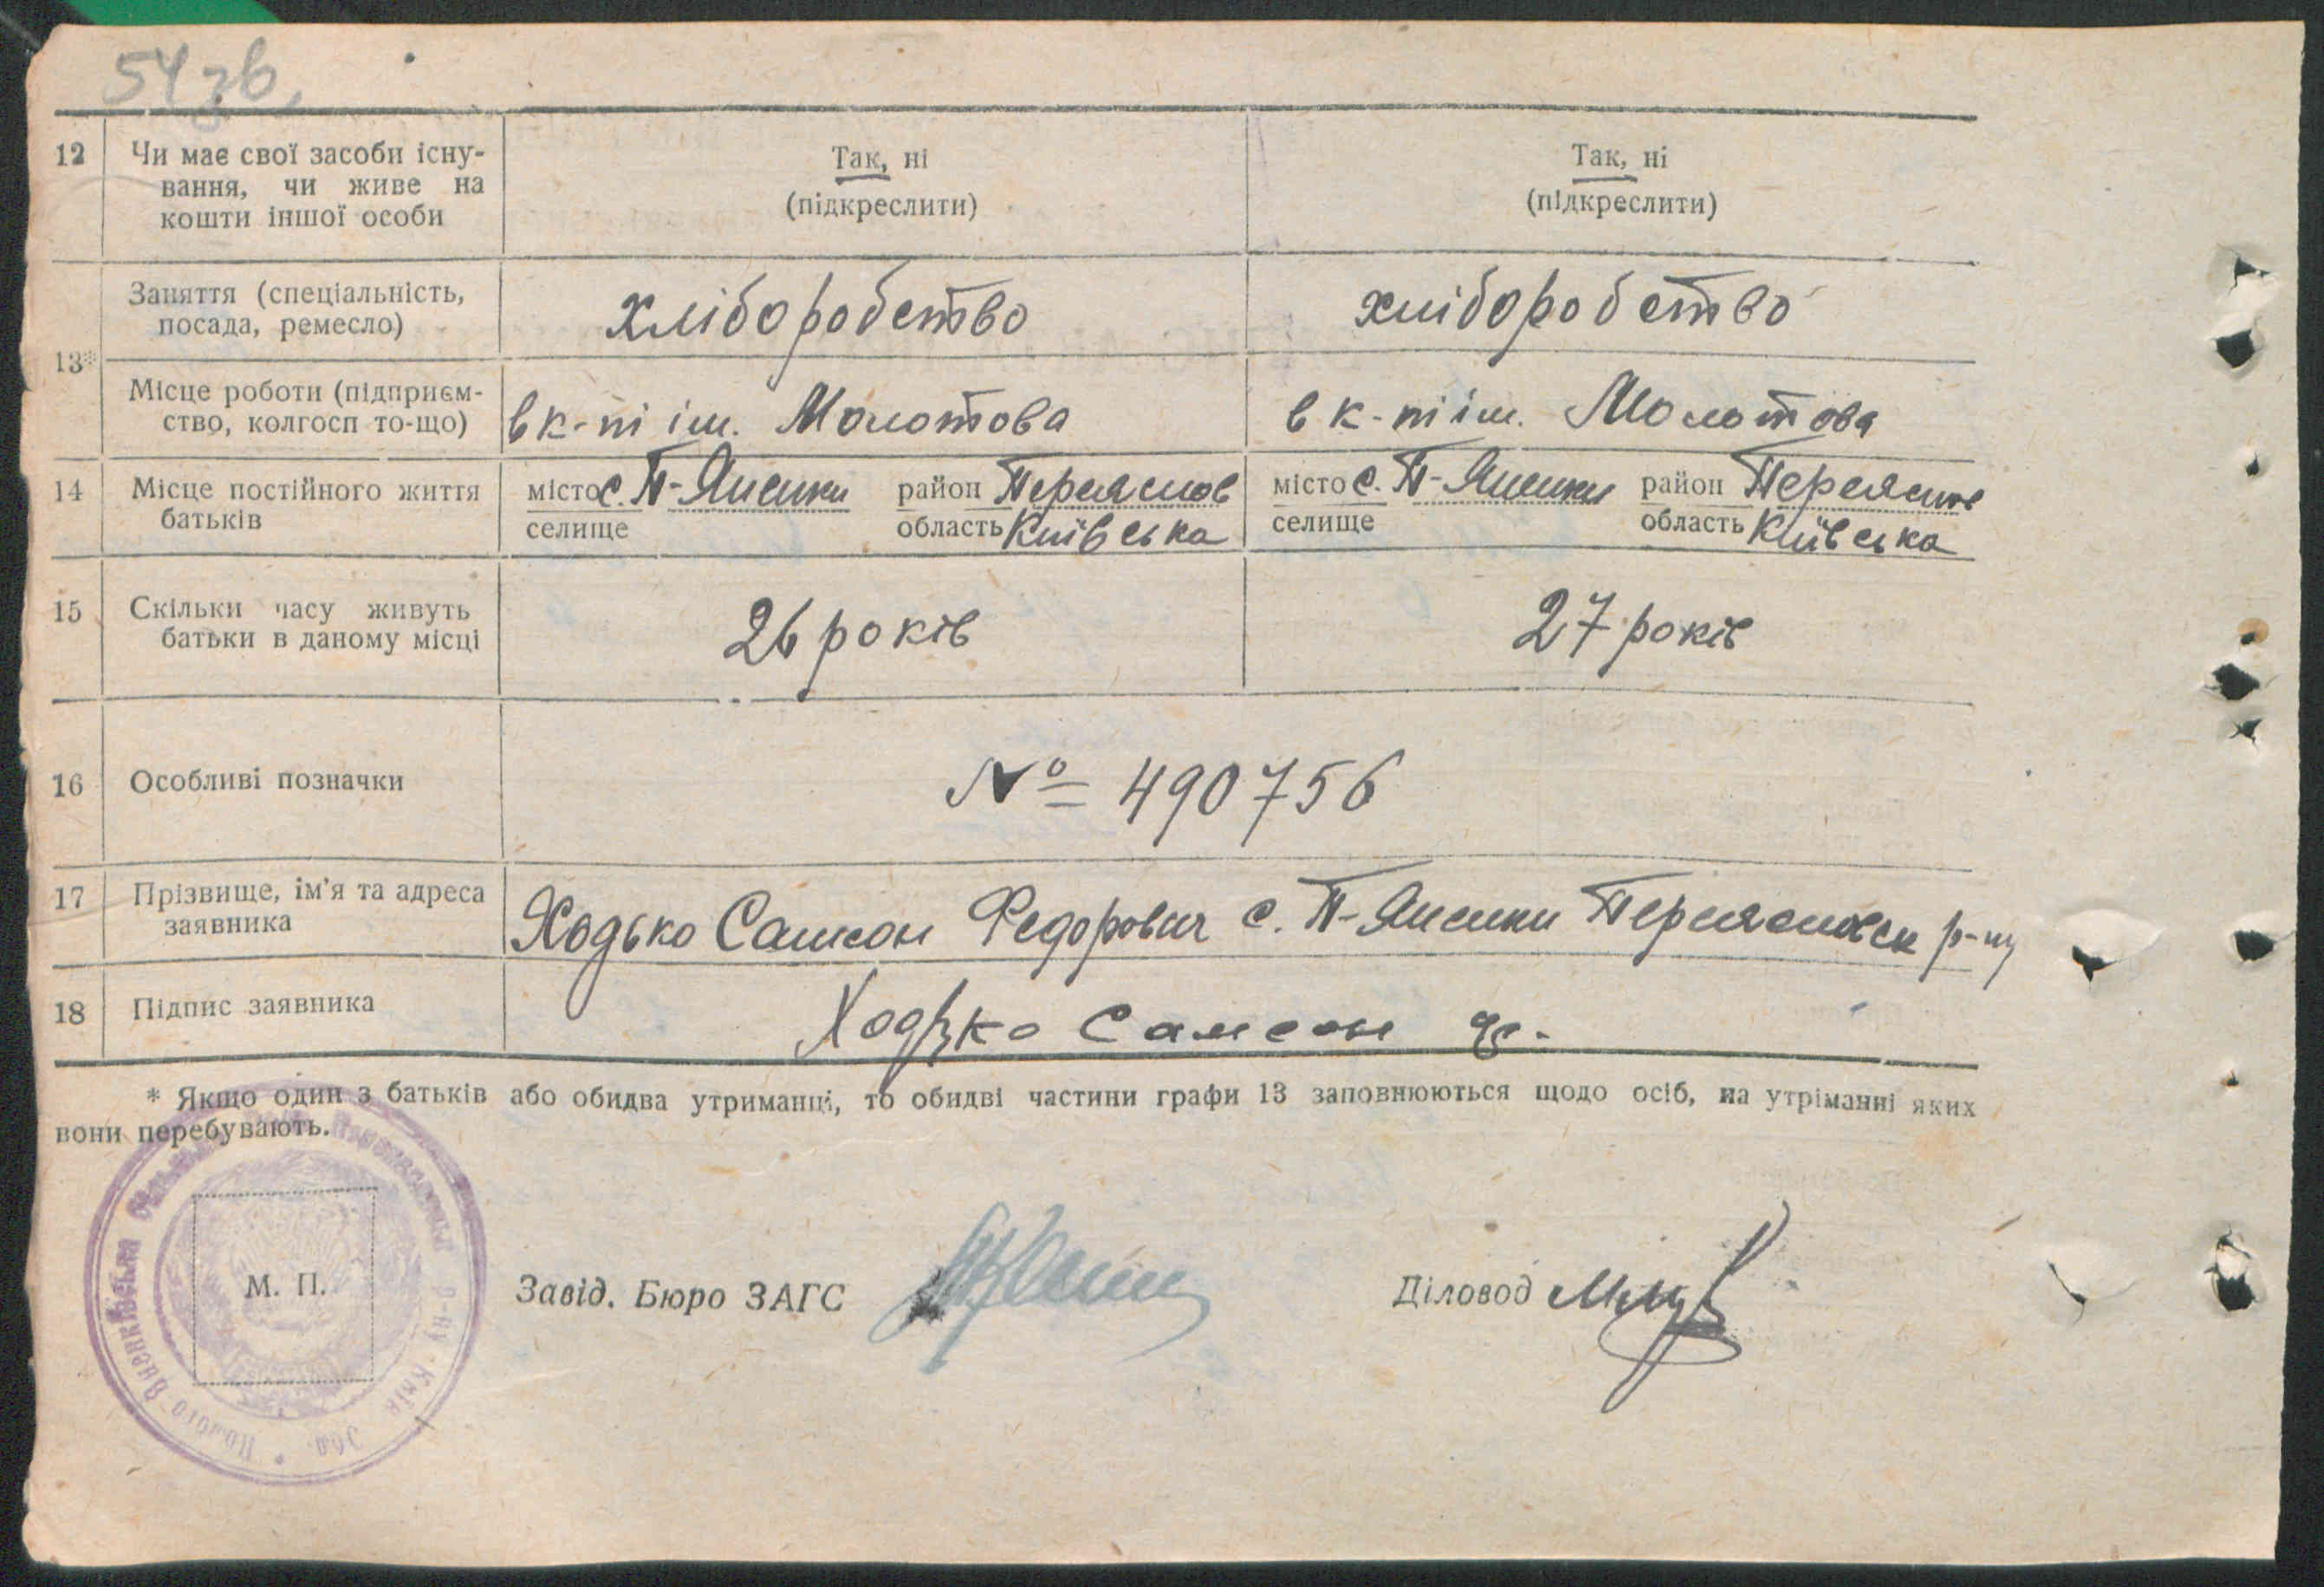 54 зв.
12 Чи має свої засоби існу- Так, ні Так, ні
вання, чи живе на (підкреслити) (підкреслити)
кошти іншої особи
13* Заняття (спеціальність, хліборобство хліборобство
посада, ремесло)
Місце роботи (підприєм- в к-пі ім. Молотова в к-пі ім. Молотова
ство, колгосп то-що)
14 Місце постійного життя місто с. П-Яненки район Переяслов місто с. П-Яненки район Переяслов
батьків селище область Київська селище область Київська
15 Скільки часу живуть 26 років 27 років
батьки в даному місці
16 Особливі позначки № 490756
17 Прізвище, ім'я та адреса Ходько Самсон Федорович с. П-Яненки Переясловск р-ну
заявника
18 Підпис заявника Ходько Самсон Ф.
* Якщо один з батьків або обидва утриманці, то обидві частини графи 13 заповнюються щодо осіб, на утріманні яких
вони перебувають.
М. П. Завід. Бюро ЗАГС Діловод